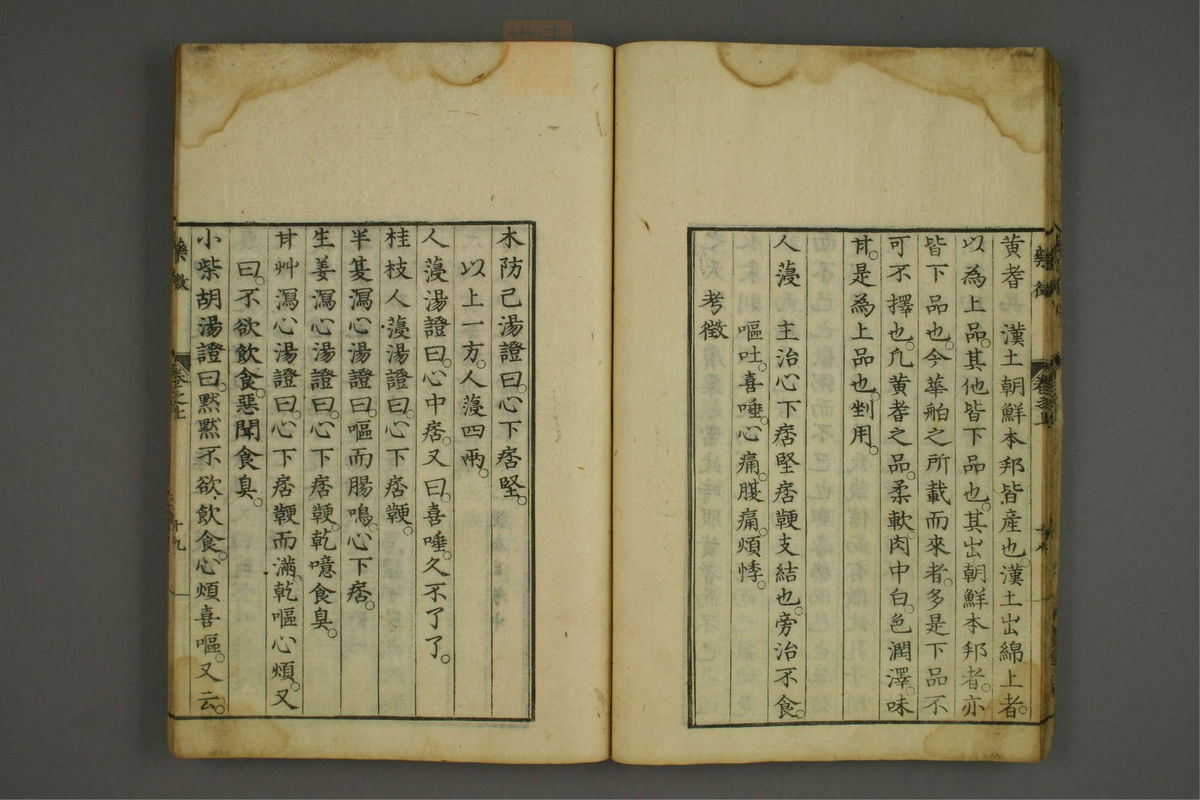 黄耆　漢土朝鮮本邦皆産也。漢土出綿上者。
以為上品。其他皆下品也。其出朝鮮本邦者。亦
皆下品也。今華舶之所載而來者。多是下品。不
可不擇也。凡黄耆之品。柔軟。肉中白。色潤澤。味
甘。是為上品也。剉用。
人薓　主治心下痞堅痞鞕支結也。旁治不食。
嘔吐。喜唾。心痛。腹痛。煩悸。
考徴
木防己湯證曰。心下痞堅。
以上一方。人薓四兩。
人薓湯證曰。心中痞。又曰。喜唾。久不了了。
桂枝人薓湯證曰。心下痞鞕。
半夏瀉心湯證曰。嘔而腸鳴。心下痞。
生姜瀉心湯證曰。心下痞鞕。乾噫食臭。
甘艸瀉心湯證曰。心下痞鞕而滿。乾嘔心煩。又
曰。不欲飲食。惡聞食臭。
小柴胡湯證曰。默默不欲飲食。心煩喜嘔。又云。
藥徴
卷之上
十九